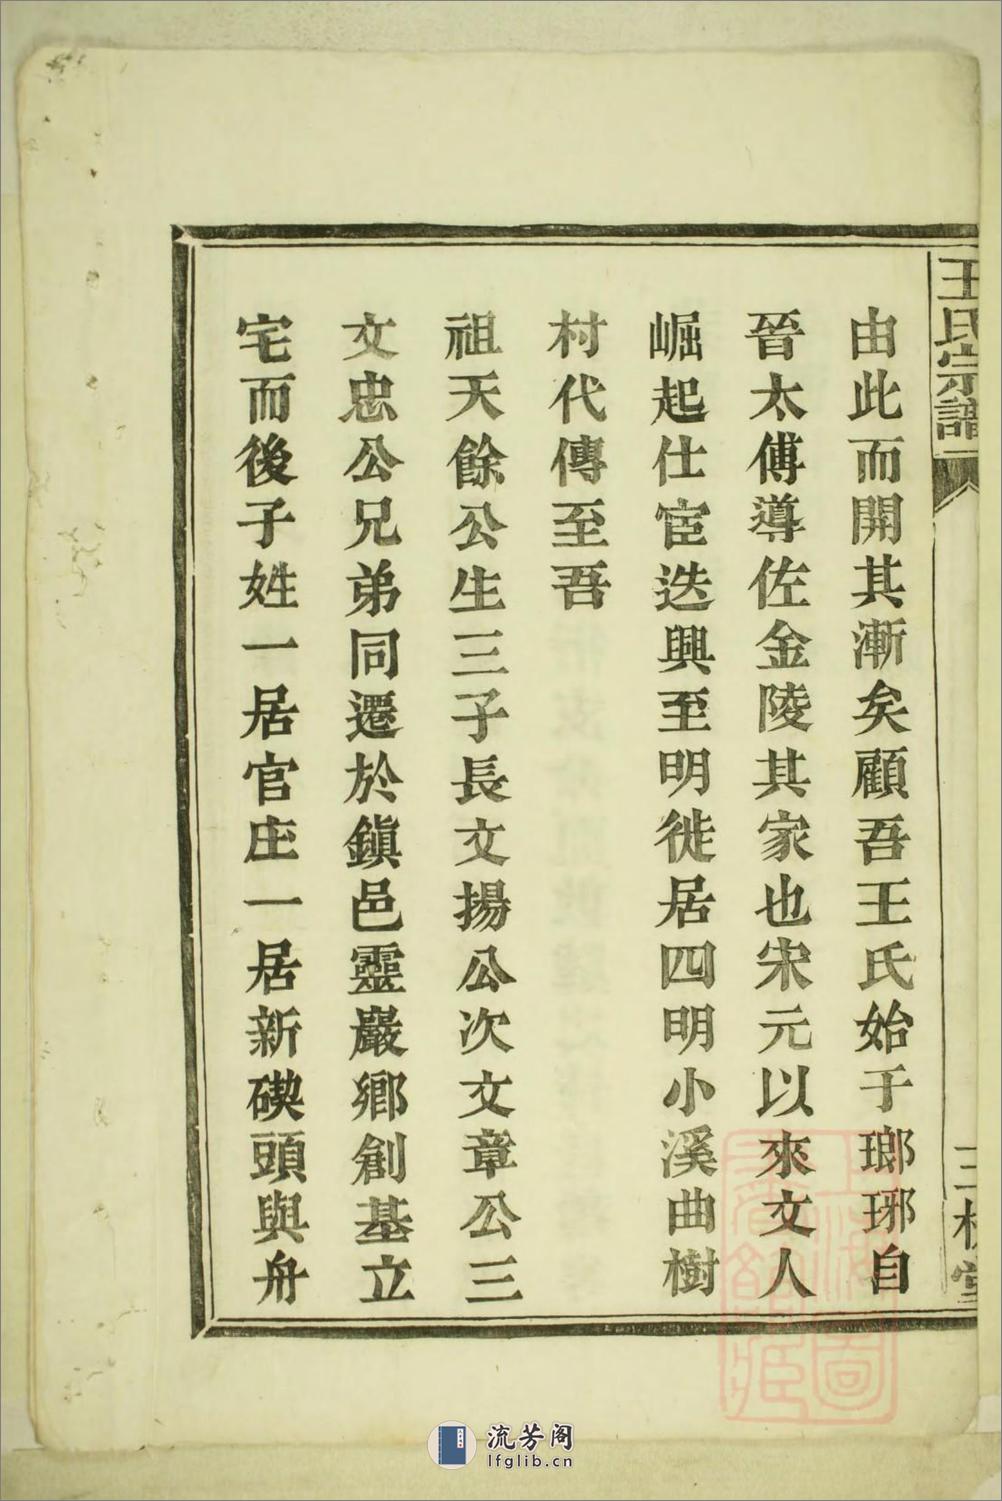 王氏宗譜
三槐堂
由此而開其漸矣顧吾王氏始于瑯琊自
晉太傅導佐金陵其家也宋元以來文人
崛起仕宦迭興至明徙居四明小溪曲樹
村代傳至吾
祖天餘公生三子長文揚公次文章公三
文忠公兄弟同遷於鎮邑靈巖鄉創基立
宅而後子姓一居官庄一居新碶頭與舟
上海圖書館藏
流芳阁
lfglib.cn